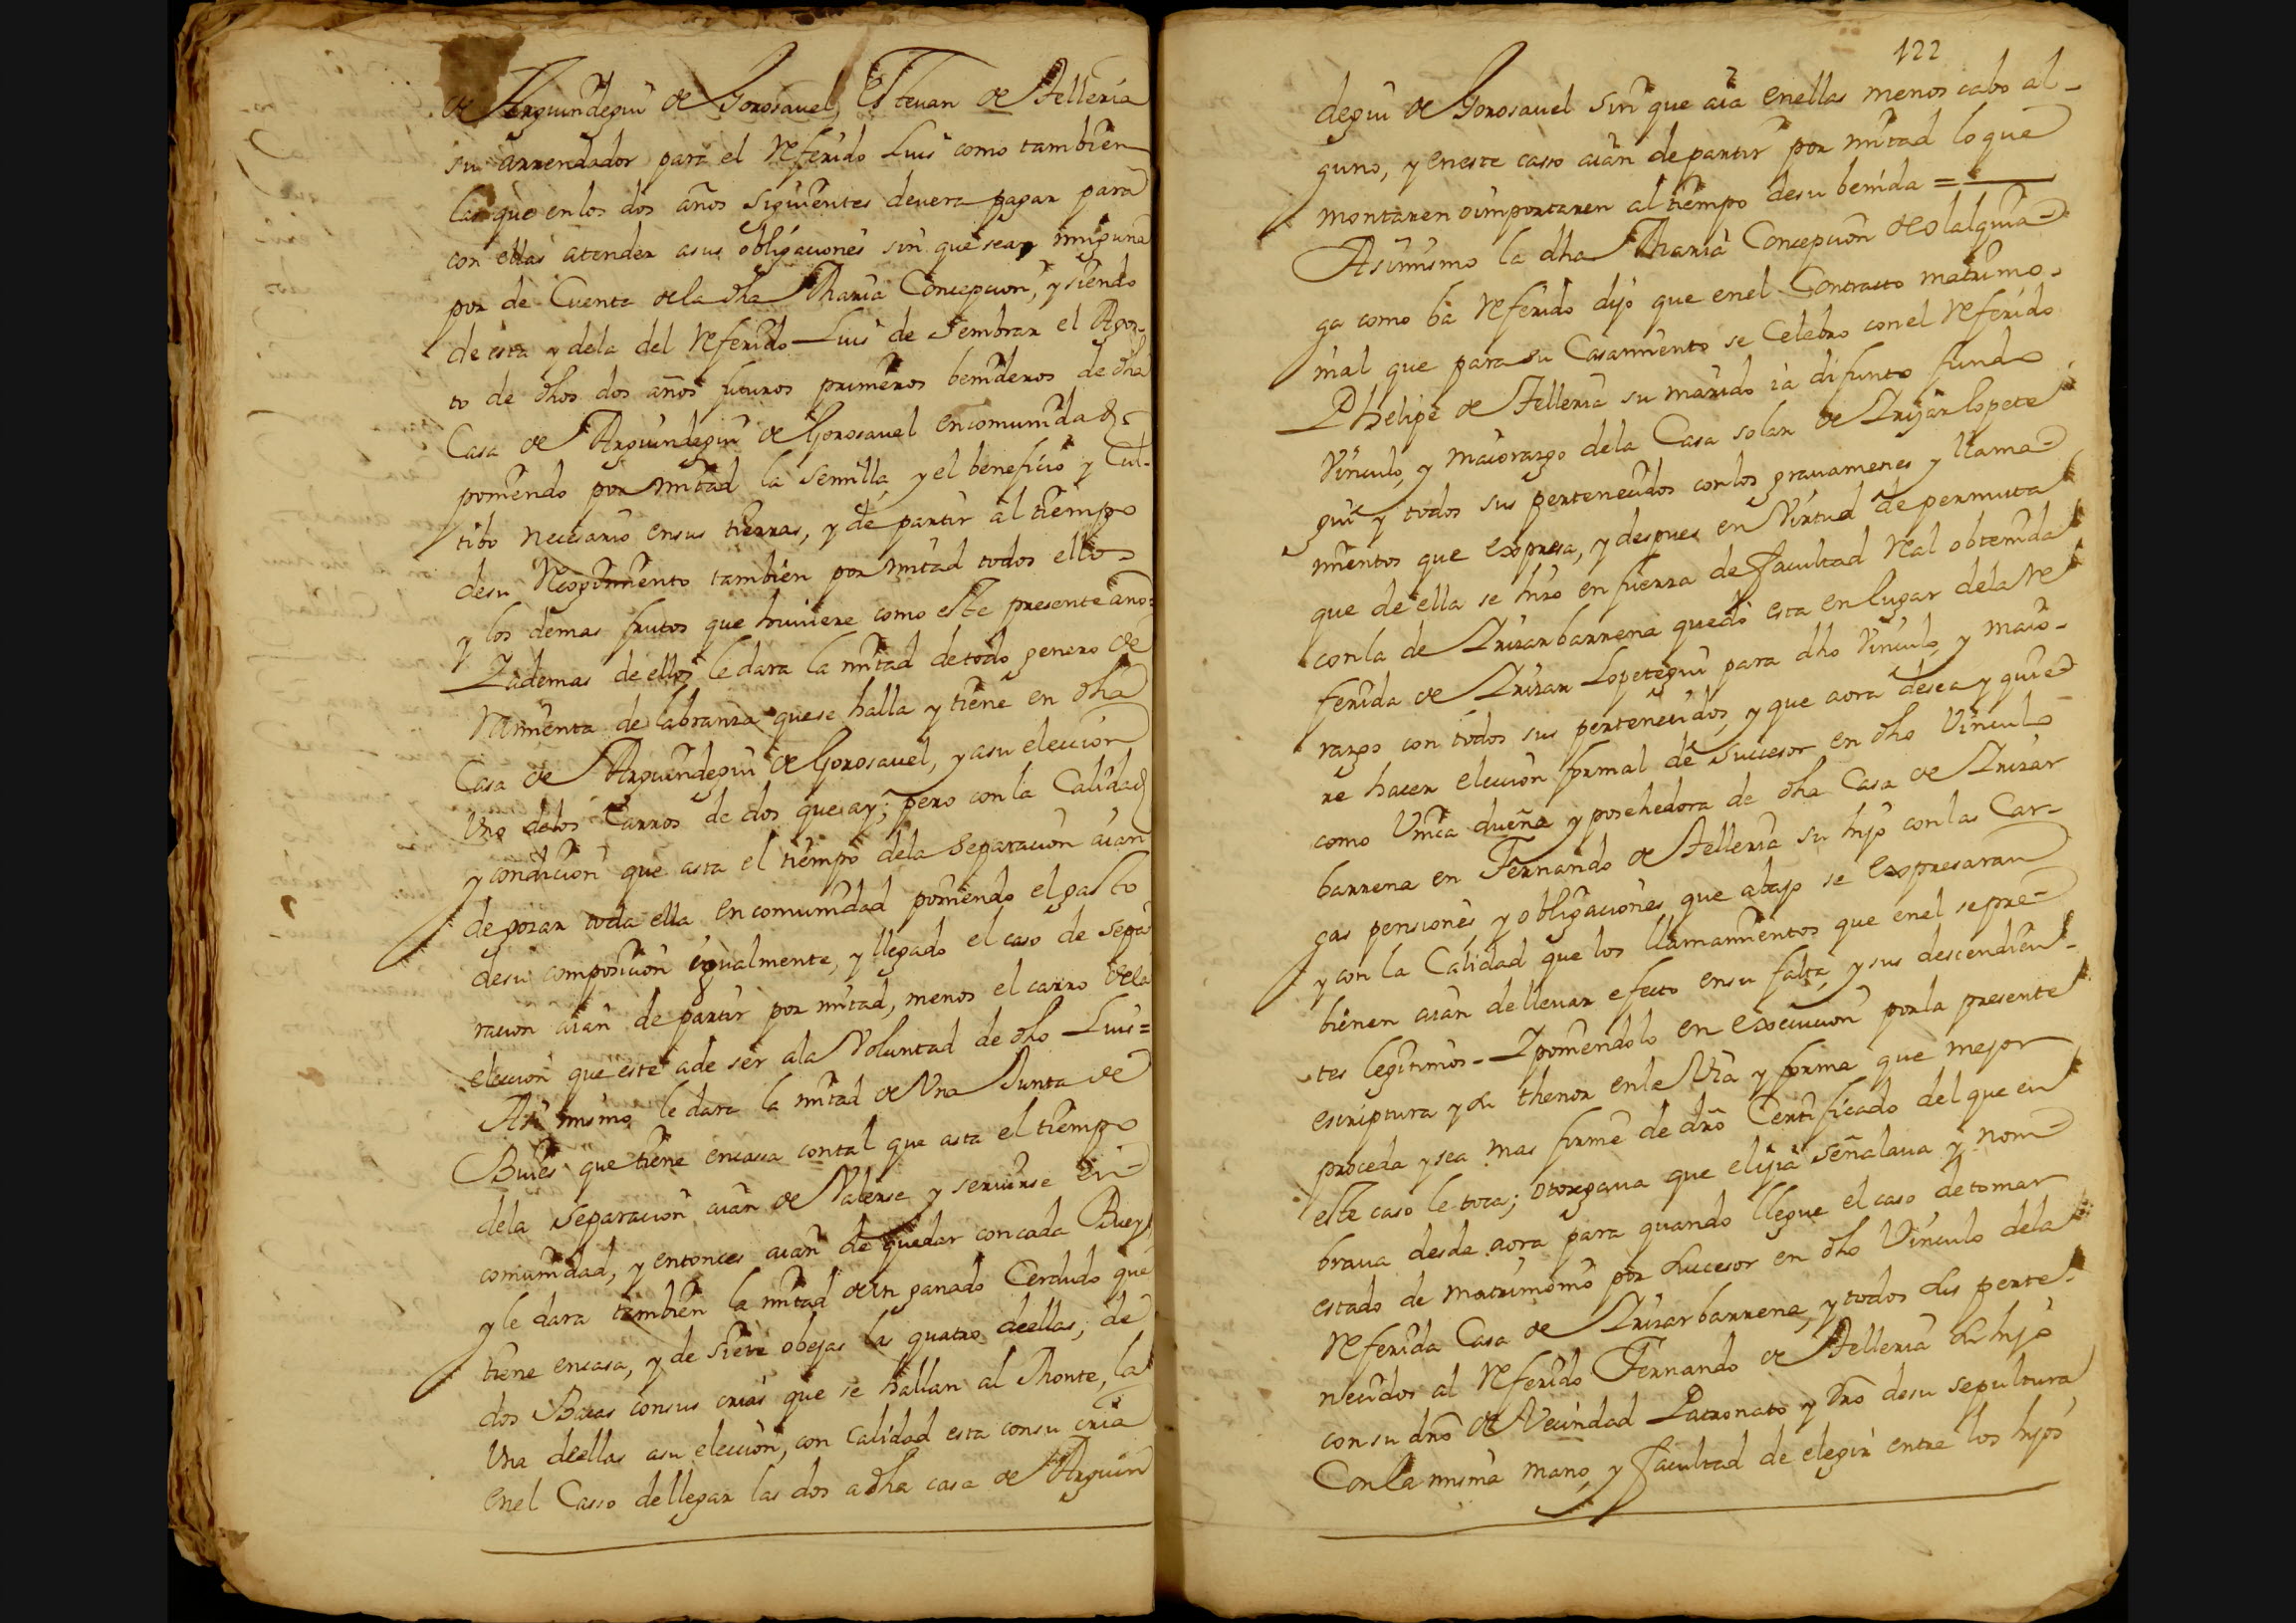 de Arguindegui de Gorosauel, Esteuan de Telleria
su arrendador para el referido Luis como tambien
las que en los dos años siguientes deuera pagar para
con ellas atender asus obligaciones sin que sean ninguna
por de Cuenta dela dha Maria Concepcion, y siendo
de esta y dela del referido Luis de sembrar el Agos-
to de dhos dos años futuros primeros benideros de dha
Casa de Arguindegui de Gorosauel en comunidad
poniendo por mitad la semilla, y el beneficio y Cul-
tibo necesario ensus tierras, y de partir al tiempo
desu Recogimiento tambien por mitad todos ellos
y los demas frutos que huuiere como este presente año=
Y ademas de ellos le dara la mitad de todo genero de
rramienta de labranza que se halla y tiene en dha
Casa de Arguindegui de Gorosauel, y asu eleccion
Uno delos Carros de dos que ay; pero con la Calidad
y condicion que asta el tiempo dela separacion aian
de gozar toda ella en comunidad poniendo el gasto
desu composicion igualmente, y llegado el caso de sepa
racion aian de partir por mitad, menos el carro dela
eleccion que este ade ser ala Voluntad de dho Luis=
Asi mismo le dara la mitad de Una Junta de
Buies que tiene encasa con tal que asta el tiempo
dela separacion aian de Valerse y seruirse en
comunidad, y entonces aian de quedar con cada Buey,
y le dara tambien la mitad de un ganado Cerdudo que
tiene encasa, y de siete obejas las quatro deellas, de
dos Bacas consus crias que se hallan al Monte, la
Una deellas asu eleccion, con calidad esta consu cria
enel Casso dellegar las dos adha casa de Arguin
122
degui de Gorosauel sin que aia enellas menos cabo al-
guno, y eneste casso aian departir por mitad lo que
montaren oimportaren al tiempo desu benida =
Asimismo la dha Maria Concepcion de Olalquia
ga como ba referido dijo que enel Contracto matrimo-
nial que para su Casamiento se Celebro con el referido
Phelipe de Telleria su marido ia difunto fundo
Vinculo, y maiorazgo dela Casa solar de Irizar lopete
gui y todos sus pertenecidos con los grauamenes y llama
mientos que expresa, y despues en Virtud de permuta
que de ella se hizo en fuerza de facultad Real obtenida
con la de Irizarbarrena quedó esta en lugar dela re
ferida de Irizar Lopetegui para dho Vinculo, y maio-
razgo con todos sus pertenecidos, y que aora desea y quie
re hacer eleccion formal de subcesor en dho Vinculo
como Unica dueña y posehedora de dha Casa de Irizar
barrena en Fernando de Telleria su hijo con las Car-
gas pensiones y obligaciones que abajo se expresaran
y con la Calidad que los llamamientos que enel se pre
bienen aian de lleuar efecto ensu falta, y sus descendien-
tes legitimos- Y poniendolo en execucion por la presente
escriptura y su thenor en la Via y forma que mejor
proceda y sea mas firme de dro Certificado del que en
este caso le toca; otorgaua que elijia señalaua y nom
braua desde aora para quando llegue el caso de tomar
estado de matrimonio por succesor en dho Vinculo dela
referida Casa de Irizarbarrena, y todos sus perte-
necidos al referido Fernando de Telleria su hijo
con su dro de Vecindad Patronato y dro desu sepultura
Con la misma mano, y facultad de elegir entre los hijos